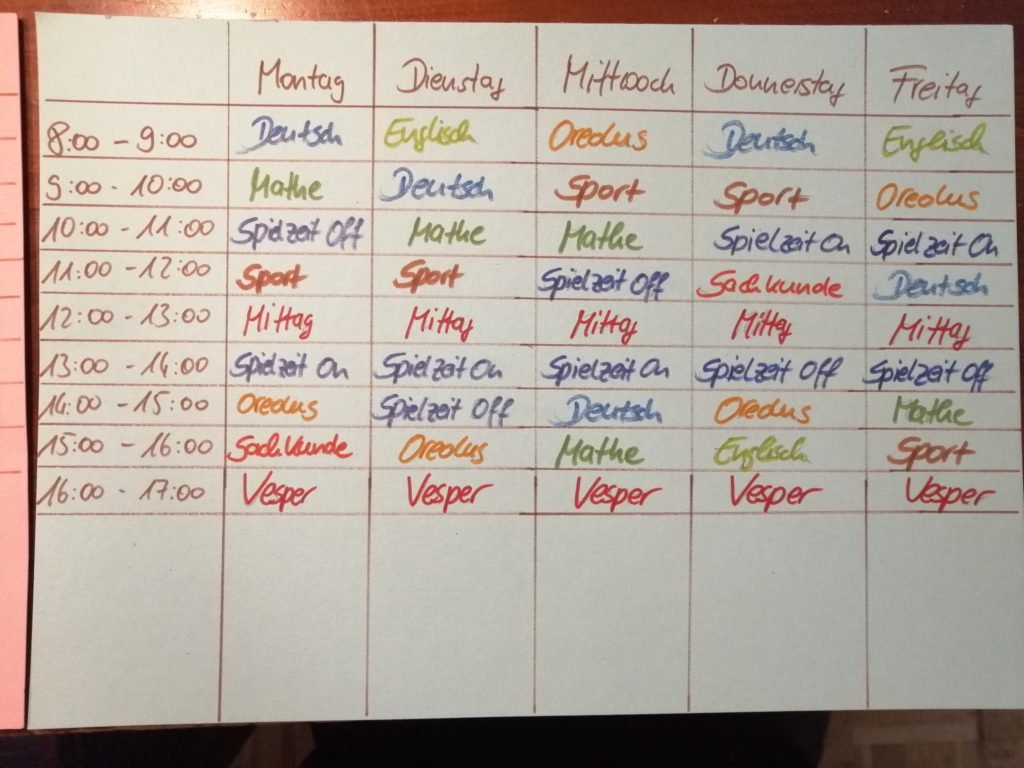 Montag Dienstag Mittwoch Donnerstag Freitag
8:00 - 9:00 Deutsch Englisch Oredus Deutsch Englisch
9:00 - 10:00 Mathe Deutsch Sport Sport Oredus
10:00 - 11:00 Spielzeit Off Mathe Mathe Spielzeit On Spielzeit On
11:00 - 12:00 Sport Sport Spielzeit Off Sachkunde Deutsch
12:00 - 13:00 Mittag Mittag Mittag Mittag Mittag
13:00 - 14:00 Spielzeit On Spielzeit On Spielzeit On Spielzeit Off Spielzeit Off
14:00 - 15:00 Oredus Spielzeit Off Deutsch Oredus Mathe
15:00 - 16:00 Sachkunde Oredus Mathe Englisch Sport
16:00 - 17:00 Vesper Vesper Vesper Vesper Vesper